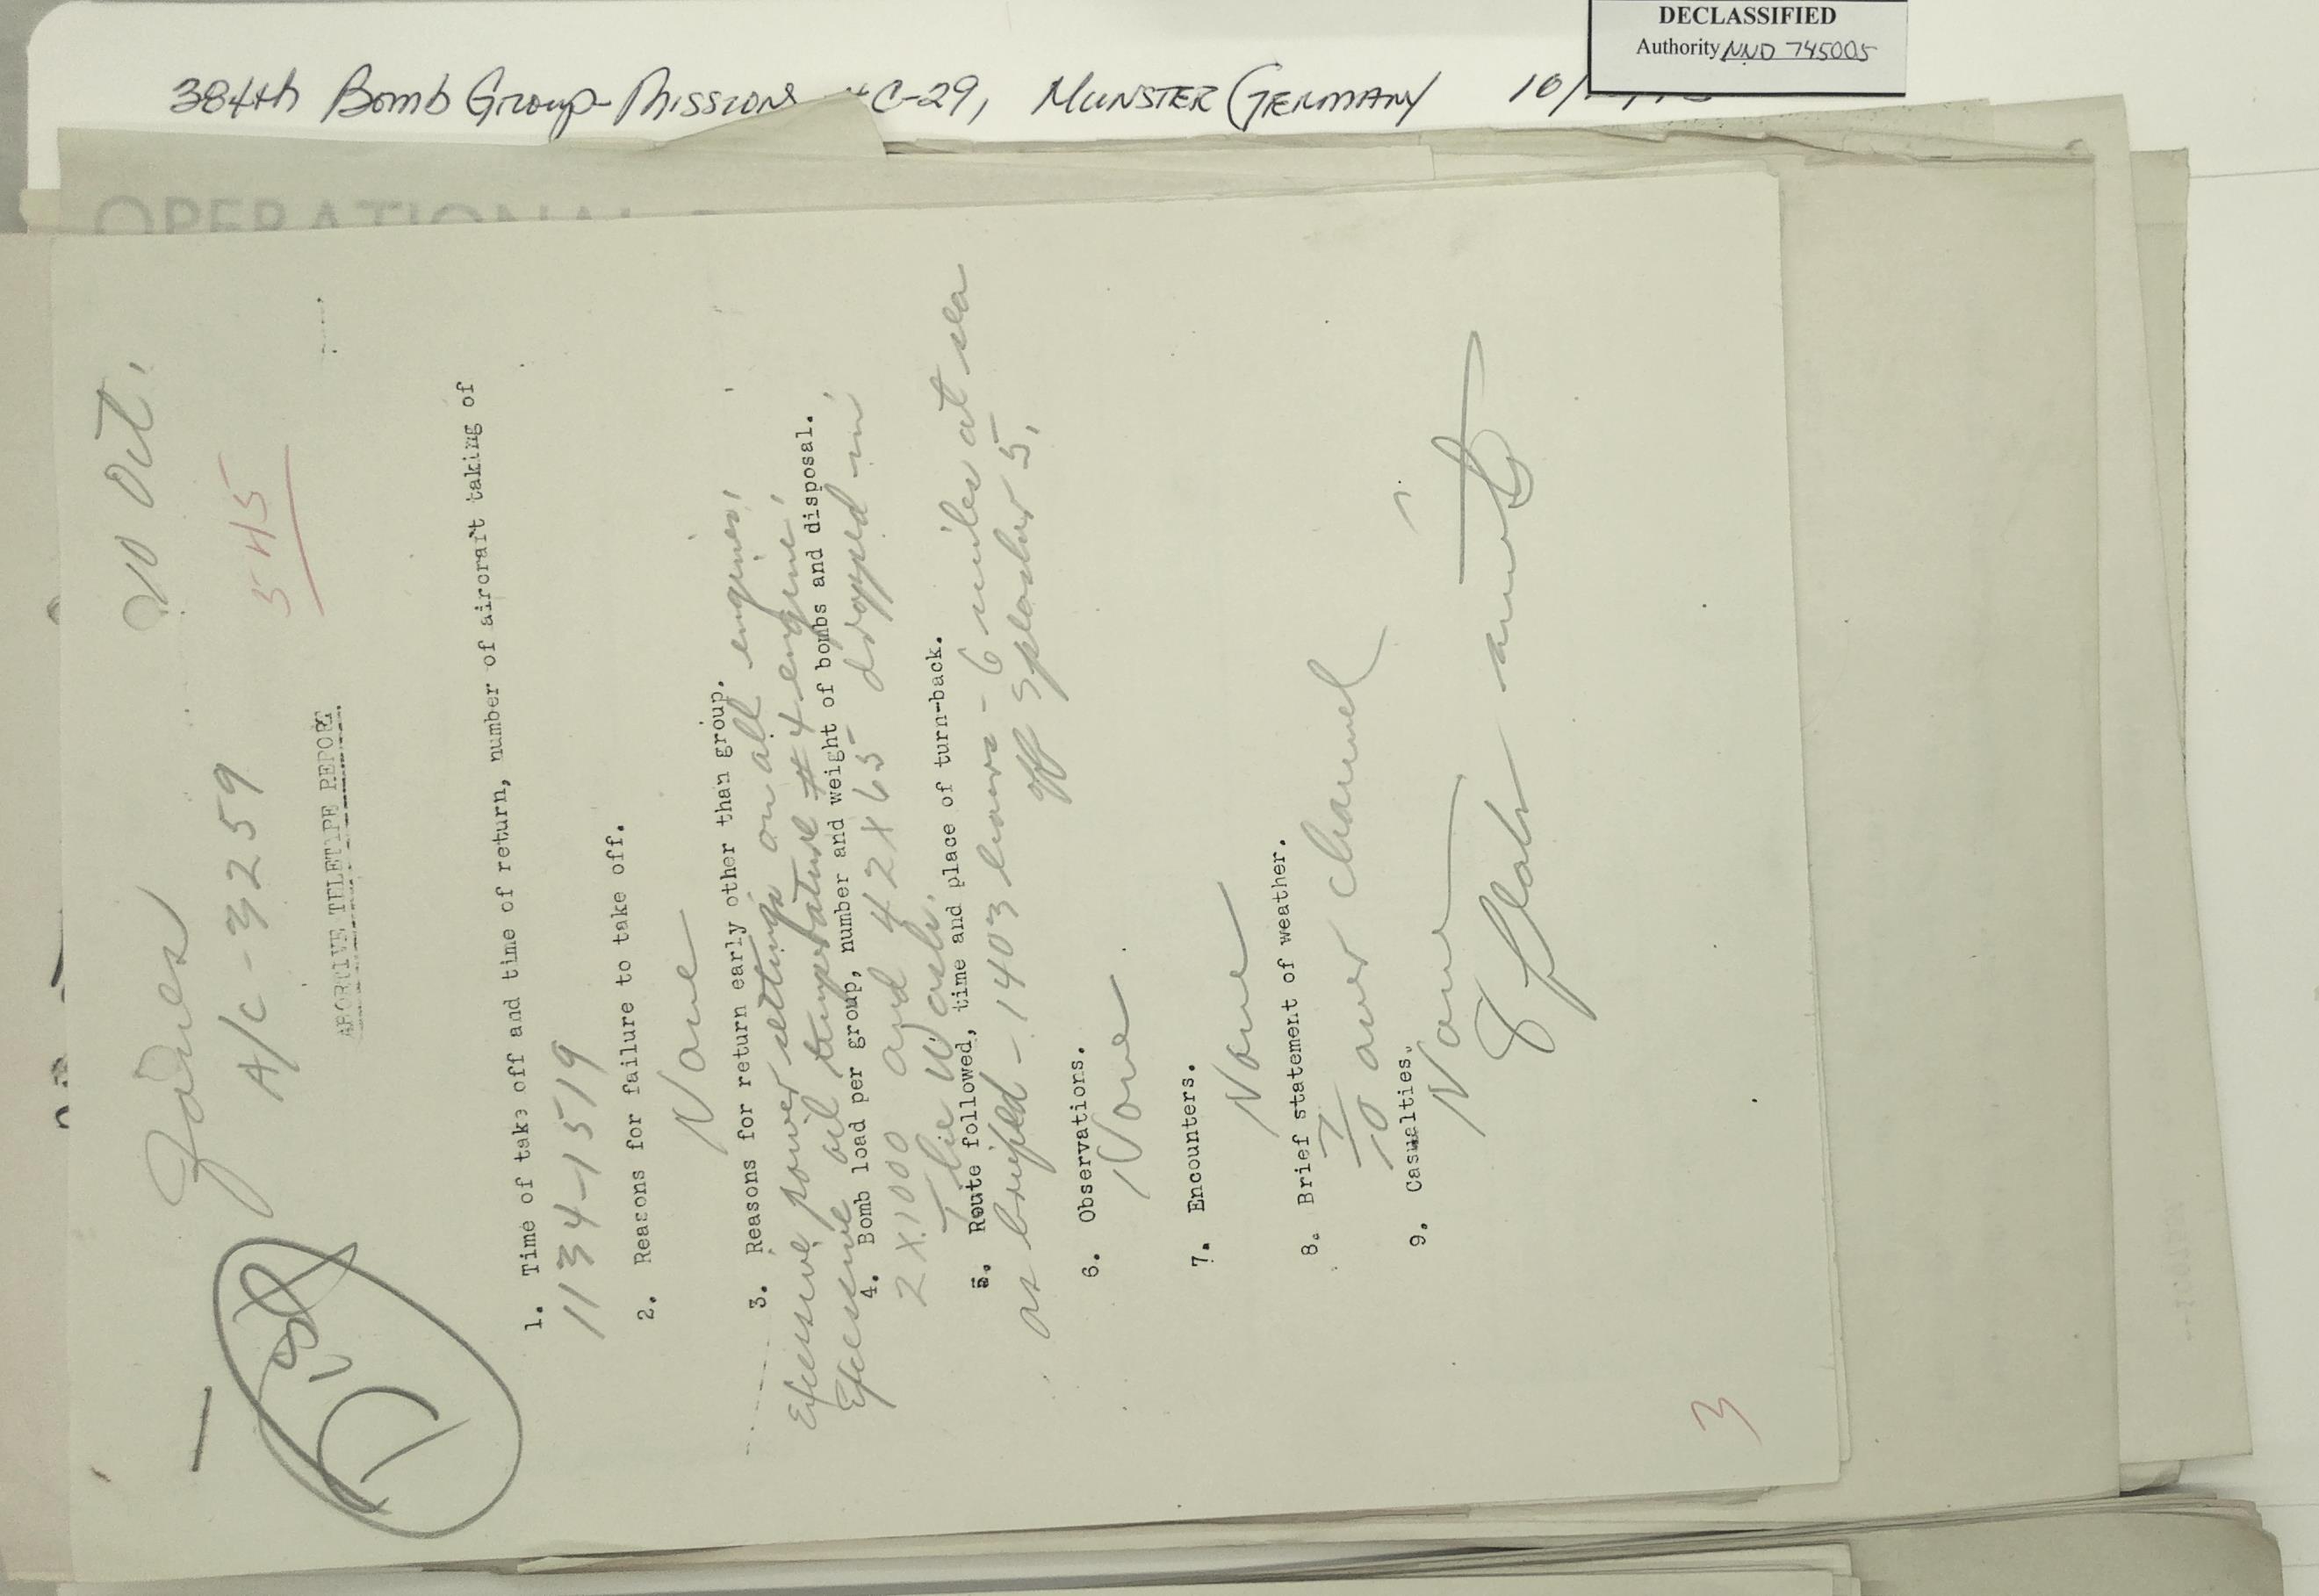 DECLASSIFIED
Authority NND 745005
384th Bomb Group-Missions C-29, MUNSTER GERMANY 10/
OPERATIONAL
10 Oct.
Jones
A/C - 3259
545
ABORTIVE TELETYPE REPORT
1. Time of take off and time of return, number of aircraft taking of
1134-1519
2. Reasons for failure to take off.
None
3. Reasons for return early other than group.
Efcessive power settings on all engines,
Efcessive oil temperature # 4 engine,
4. Bomb load per group, number and weight of bombs and disposal.
2 X 1000 and 42 X 65 dropped in
The Wash.
5. Route followed, time and place of turn-back.
as briefed - 1403 hours - 6 miles at sea
off Splasher 5,
6. Observations.
None
7. Encounters.
None
8. Brief statement of weather.
7/10 over channel
9. Casualties.
None
3